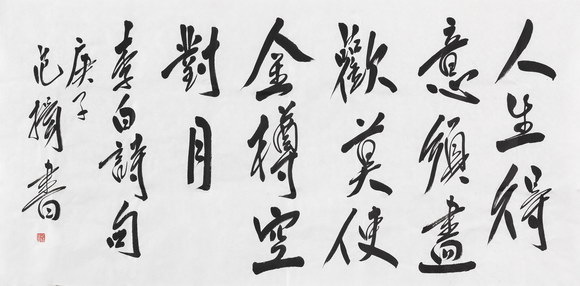 人生得
意須盡
歡莫使
金樽空
對月
李白詩句
庚子
范書